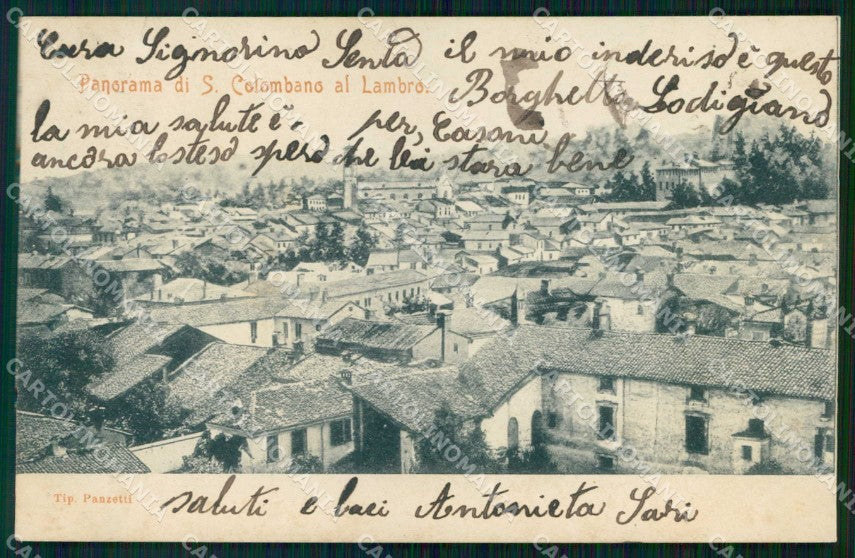 Cara Signorina Senta il mio inderiso è questo
Panorama di S. Colombano al Lambro.
Borghetto Lodigiano
la mia salute è per, Casoni
ancora losteso spero che lei stara bene
Tip. Panzetti
saluti e baci Antonieta Sari
CARTOLINOMANIA